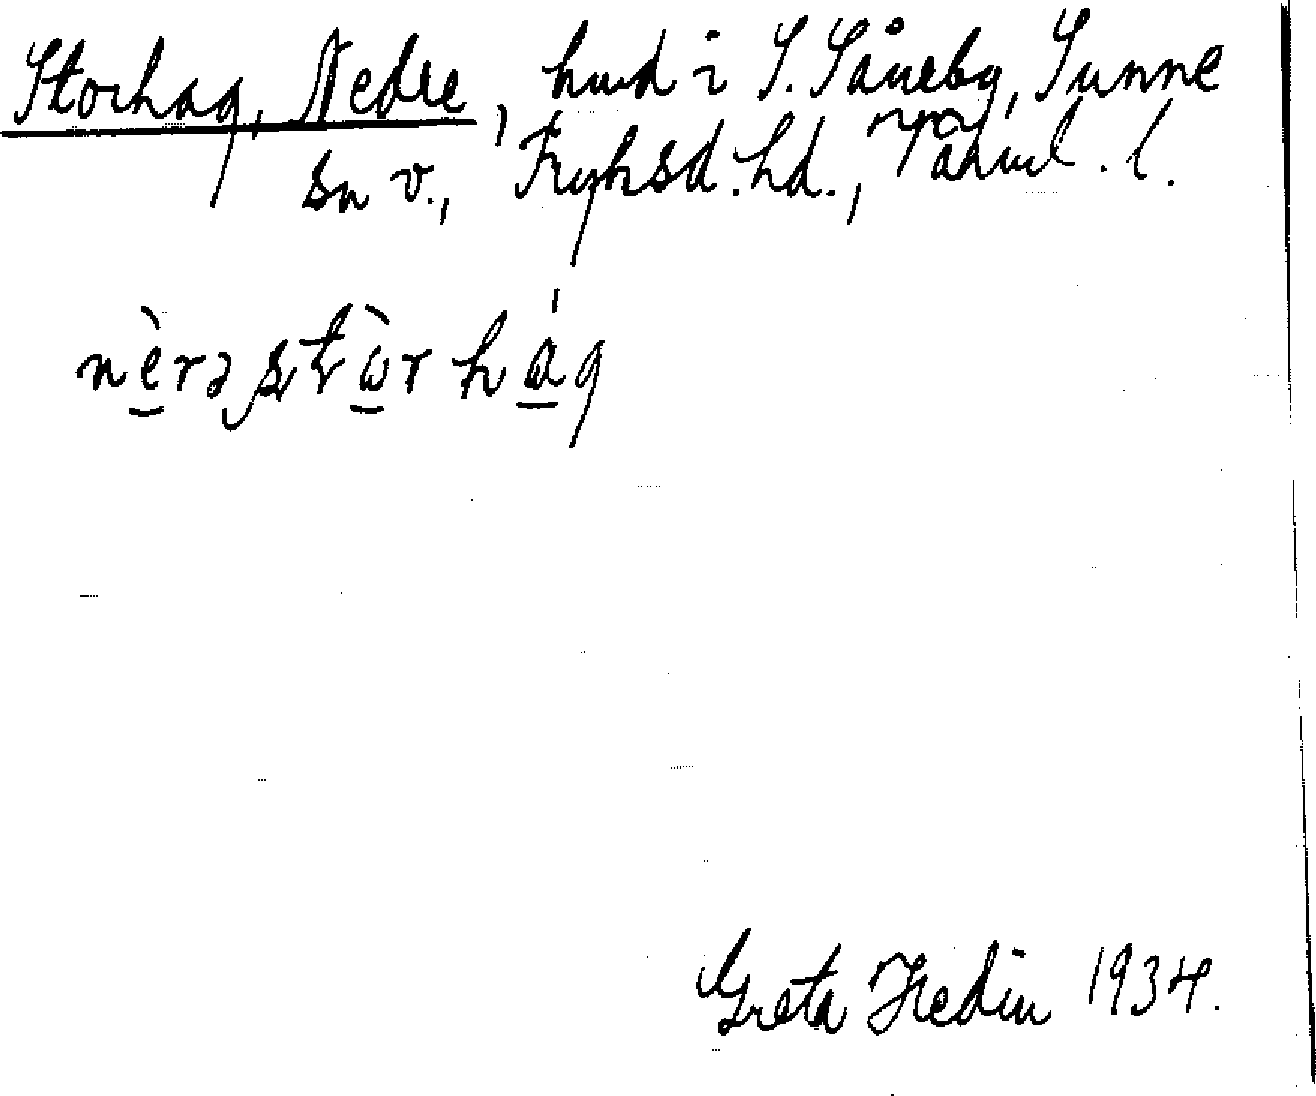 Storhag, Nedre, hmd i S. Såneby, Sunne
sn v., Fryksd. hd., Värml. l.
nèrəstὼrhág
Greta Hedin 1934.